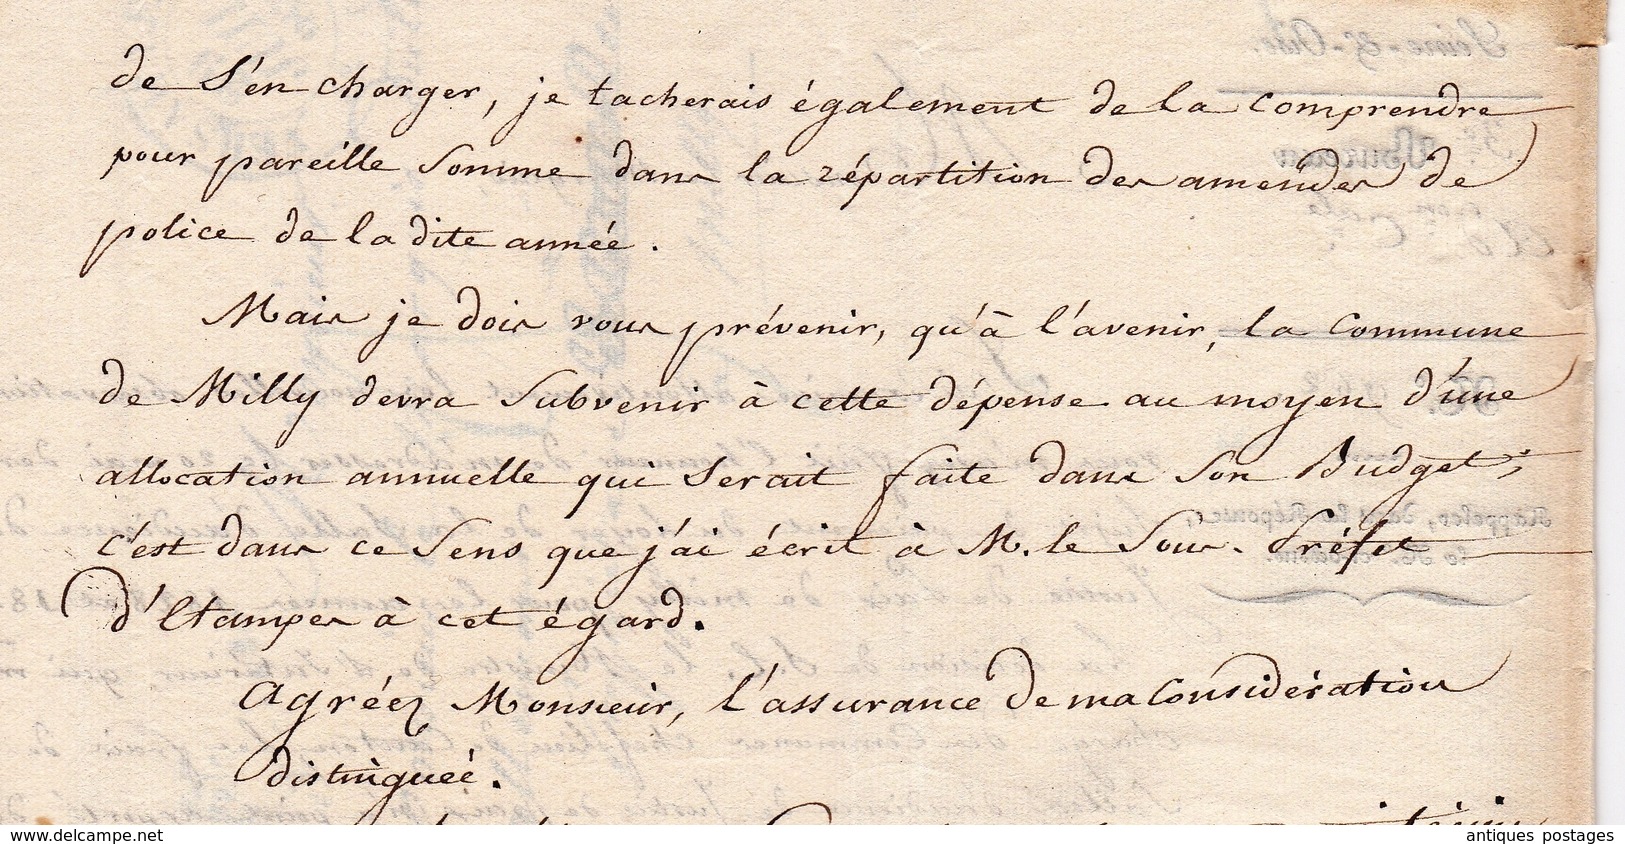 de s'en charger, je tacherais également de la comprendre
pour pareille somme dans la répartition des amendes de
police de la dite année.
Mais je dois vous prévenir, qu'à l'avenir, la commune
de Milly devra subvenir à cette dépense au moyen d'une
allocation annuelle qui serait faite dans son Budget;
c'est dans ce sens que j'ai écrit à M. le Sous-Préfet
d'Etampes à cet égard.
Agréez Monsieur, l'assurance de ma considération
distinguée.
www.delcampe.net
antiques postages